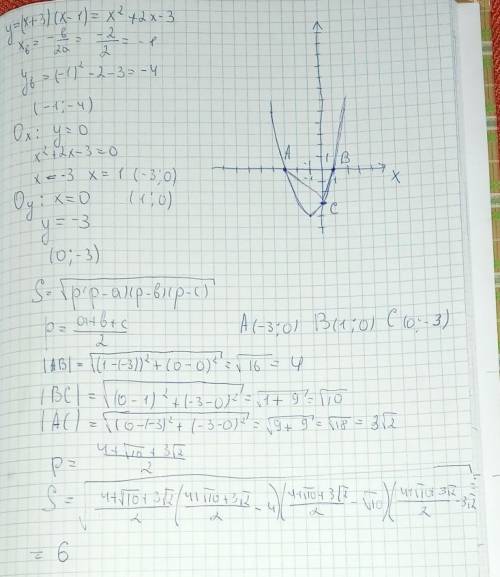 y=(x+3)(x-1)= x²+2x-3
xв= -в/2a = -2/2 = -1
yв=(-1)²-2-3=-4
(-1;-4)
Ox: y=0
x²+2x-3=0
x=-3 x=1 (-3;0)
Oy: x=0 (1;0)
y=-3
(0;-3)
A B X
-1 1 1
C
S=√(p(p-a)(p-в)(p-c))
p= (a+в+c)/2 A(-3;0) B(1;0) C(0;-3)
|AB|=√((1-(-3))²+(0-0)²)=√16=4
|BC|=√((0-1)²+(-3-0)²)=√(1+9)=√10
|AC|=√((0-(-3)²+(-3-0)²)=√(9+9)=√18=3√2
p= (4+√10+3√2)/2
S=√((4+√10+3√2)/2 ((4+√10+3√2)/2 -4)((4+√10+3√2)/2 -√10)((4+√10+3√2)/2 -3√2)=
= 6